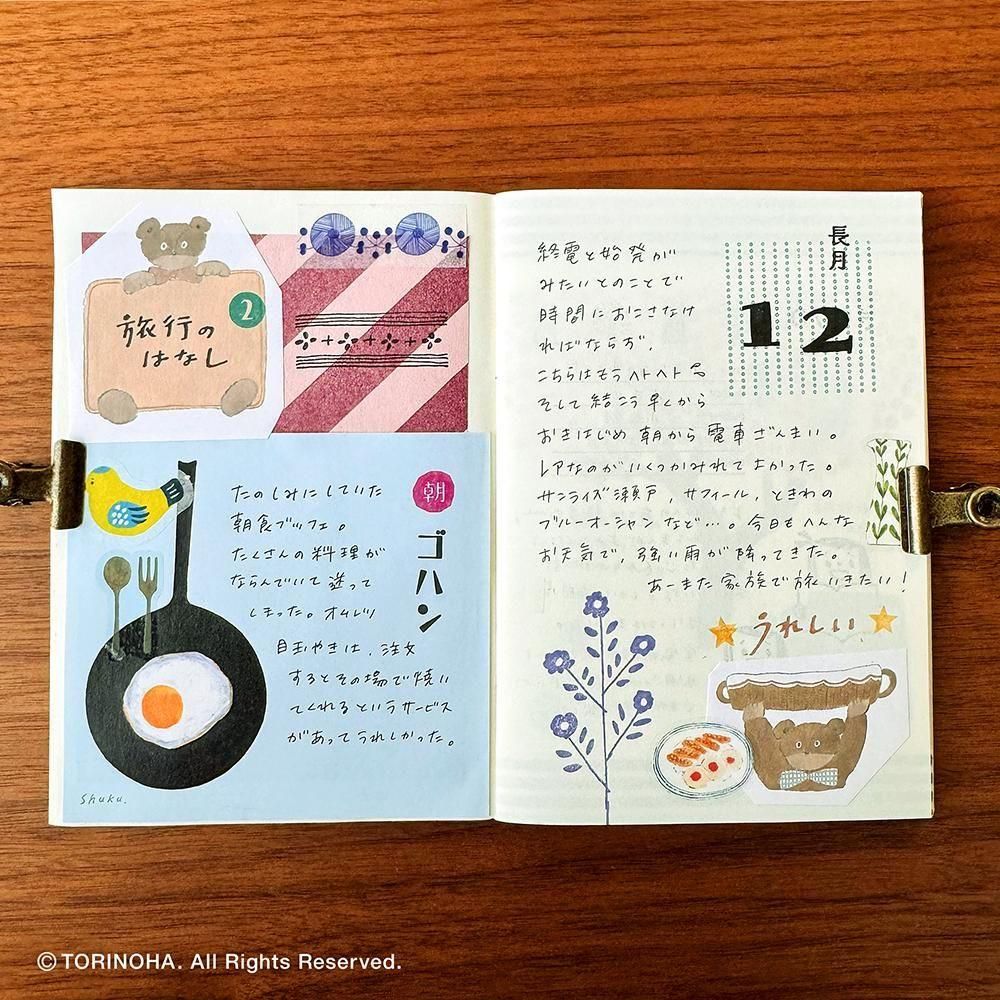 旅行の
はなし
2
朝
ゴハン
たのしみにしていた
朝食ブッフェ。
たくさんの料理が
ならんでいて迷って
しまった。オムレツ
目玉やきは、注文
するとその場で焼い
てくれるというサービス
があってうれしかった。
Shuku.
長月
12
終電と始発が
みたいとのことで
時間におこさなけ
ればならず、
こちらはもうヘトヘト
そして結こう早くから
おきはじめ朝から電車ざんまい。
レアなのがいくつかみれてよかった。
サンライズ瀬戸、サフィール、ときわの
ブルーオーシャンなど…。今日もへんな
お天気で、強い雨が降ってきた。
あーまた家族で旅いきたい!
うれしい
©TORINOHA. All Rights Reserved.